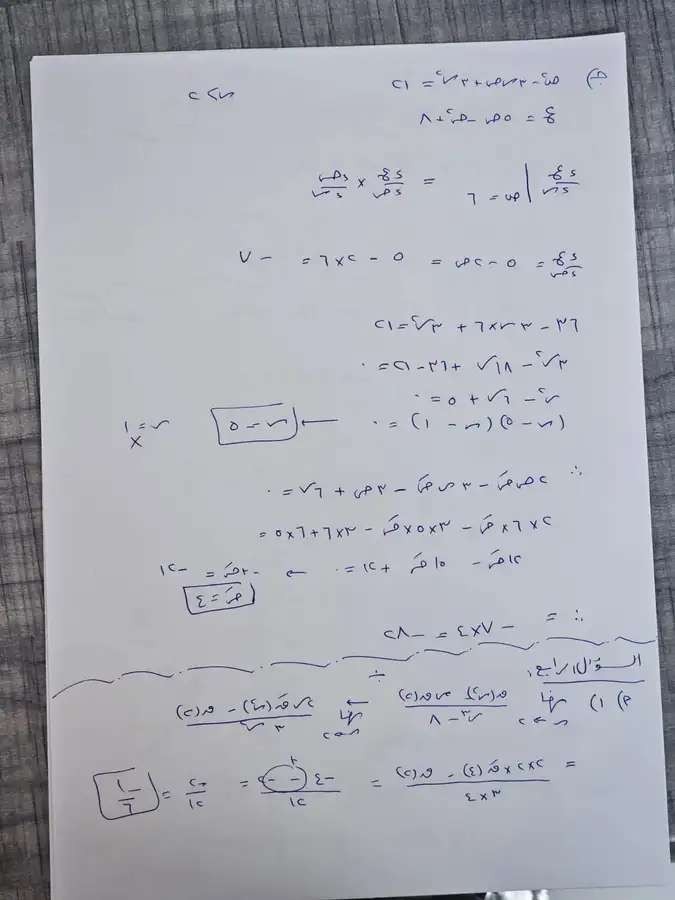 ج) ص² - ٣س ص + ٣س² = ٢١    س > ٢
ع = ٥ص - ص² + ٨
دع/دس | ص = ٦ = دع/دص × دص/دس
دع/دص = ٥ - ٢ص = ٥ - ٢×٦ = -٧
٣٦ - ٣س×٦ + ٣س² = ٢١
٣س² - ١٨س + ٣٦ - ٢١ = ٠
س² - ٦س + ٥ = ٠
(س - ٥)(س - ١) = ٠ ← س = ٥    س = ١ ×
∴ ٢ص صَ - ٣س صَ - ٣ص + ٦س = ٠
٢×٦×صَ - ٣×٥×صَ - ٣×٦ + ٦×٥ = ٠
١٢صَ - ١٥صَ + ١٢ = ٠ ← -٣صَ = -١٢
صَ = ٤
∴ = -٧×٤ = -٢٨
السؤال الرابع:
أ) ١) نهــا س←٢ ق(س²) - س ق(٢) / س³ - ٨ ← نهــا س←٢ ٢س قَ(س²) - ق(٢) / ٣س²
= ٢×٢×قَ(٤) - ق(٢) / ٣×٤ = -٤ - -٢ / ١٢ = -٢/١٢ = -١/٦